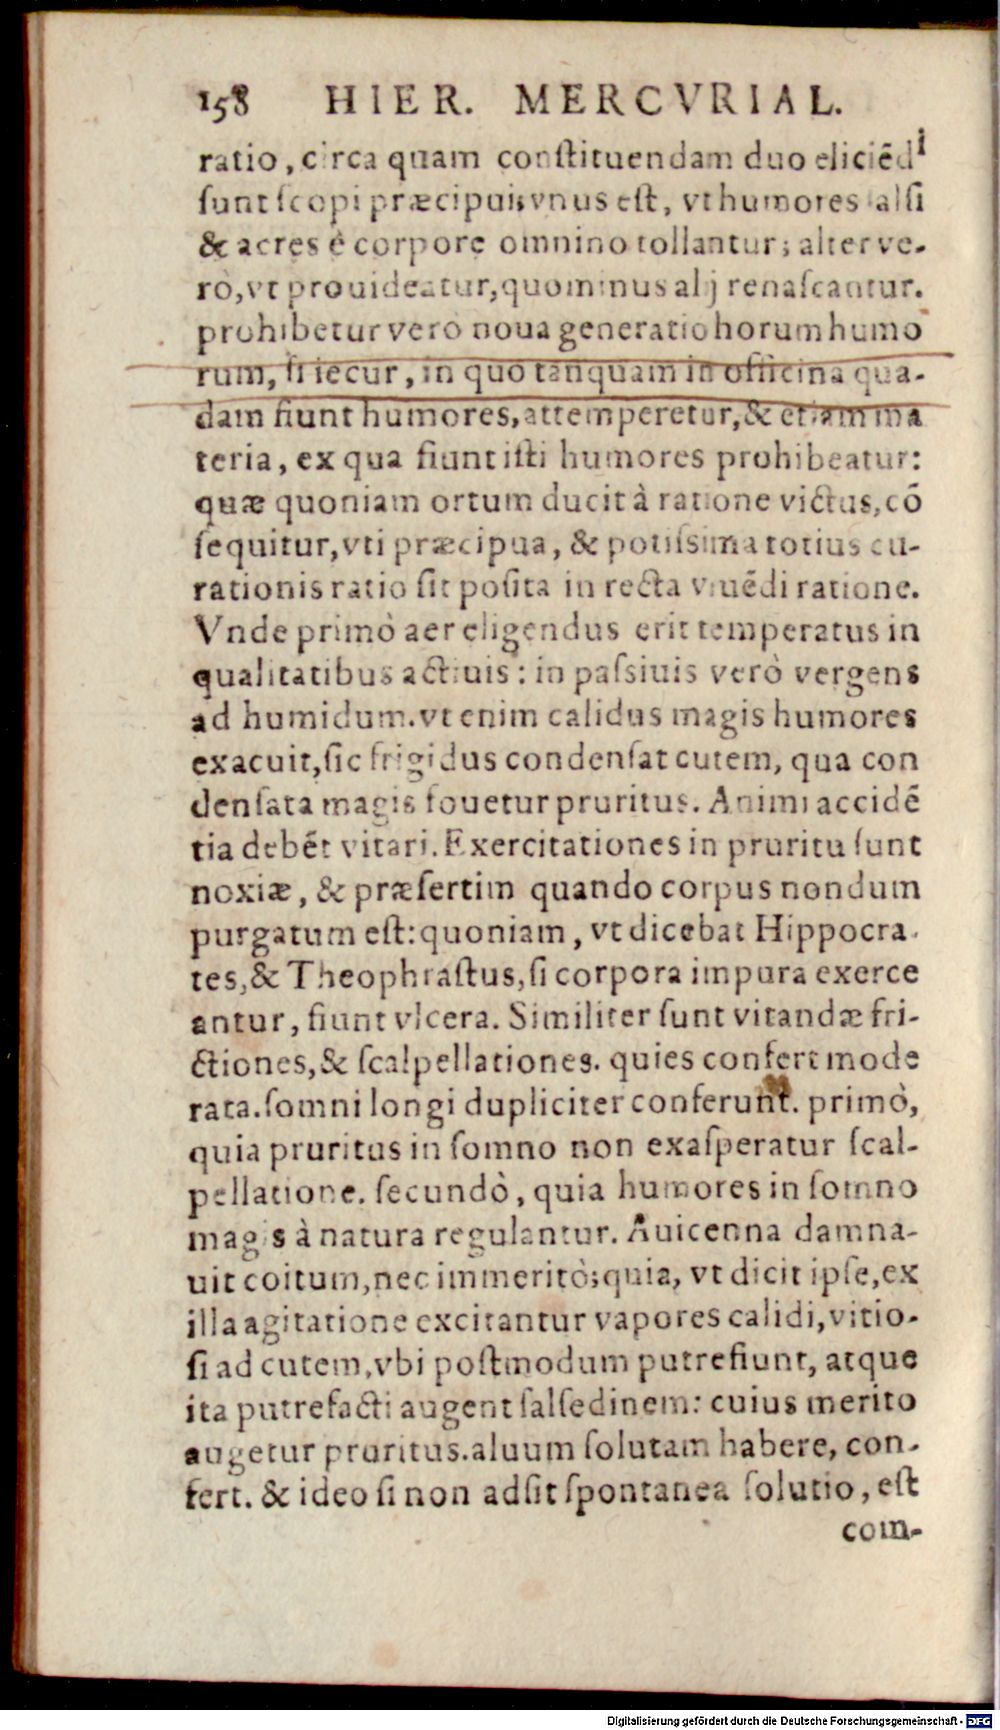 158 HIER. MERCVRIAL.
ratio, circa quam conſtituendam duo eliciēdi
ſunt ſcopi præcipui; vnus eſt, vt humores ſalſi
& acres é corpore omnino tollantur; alter ve-
rò, vt prouideatur, quominus alij renaſcantur.
prohibetur vero noua generatio horum humo
rum, ſi iecur, in quo tanquam in officina qua-
dam fiunt humores, attemperetur, & etiam ma
teria, ex qua fiunt iſti humores prohibeatur:
quæ quoniam ortum ducit à ratione victus, cō
ſequitur, vti præcipua, & potiſsima totius cu-
rationis ratio ſit poſita in recta viuēdi ratione.
Vnde primò aer eligendus erit temperatus in
qualitatibus actiuis: in paſsiuis verò vergens
ad humidum. vt enim calidus magis humores
exacuit, ſic frigidus condenſat cutem, qua con
denſata magis fouetur pruritus. Animi accidē
tia debēt vitari. Exercitationes in pruritu ſunt
noxiæ, & præſertim quando corpus nondum
purgatum eſt: quoniam, vt dicebat Hippocra-
tes, & Theophraſtus, ſi corpora impura exerce
antur, fiunt vlcera. Similiter ſunt vitandæ fri-
ctiones, & ſcalpellationes. quies confert mode
rata. ſomni longi dupliciter conferunt. primò,
quia pruritus in ſomno non exaſperatur ſcal-
pellatione. ſecundò, quia humores in ſomno
magis à natura regulantur. Auicenna damna-
uit coitum, nec immeritò; quia, vt dicit ipſe, ex
illa agitatione excitantur vapores calidi, vitio-
ſi ad cutem, vbi poſtmodum putrefiunt, atque
ita putrefacti augent ſalſedinem: cuius merito
augetur pruritus. aluum ſolutam habere, con-
fert. & ideo ſi non adſit ſpontanea ſolutio, eſt
com-
Digitalisierung gefördert durch die Deutsche Forschungsgemeinschaft - DFG